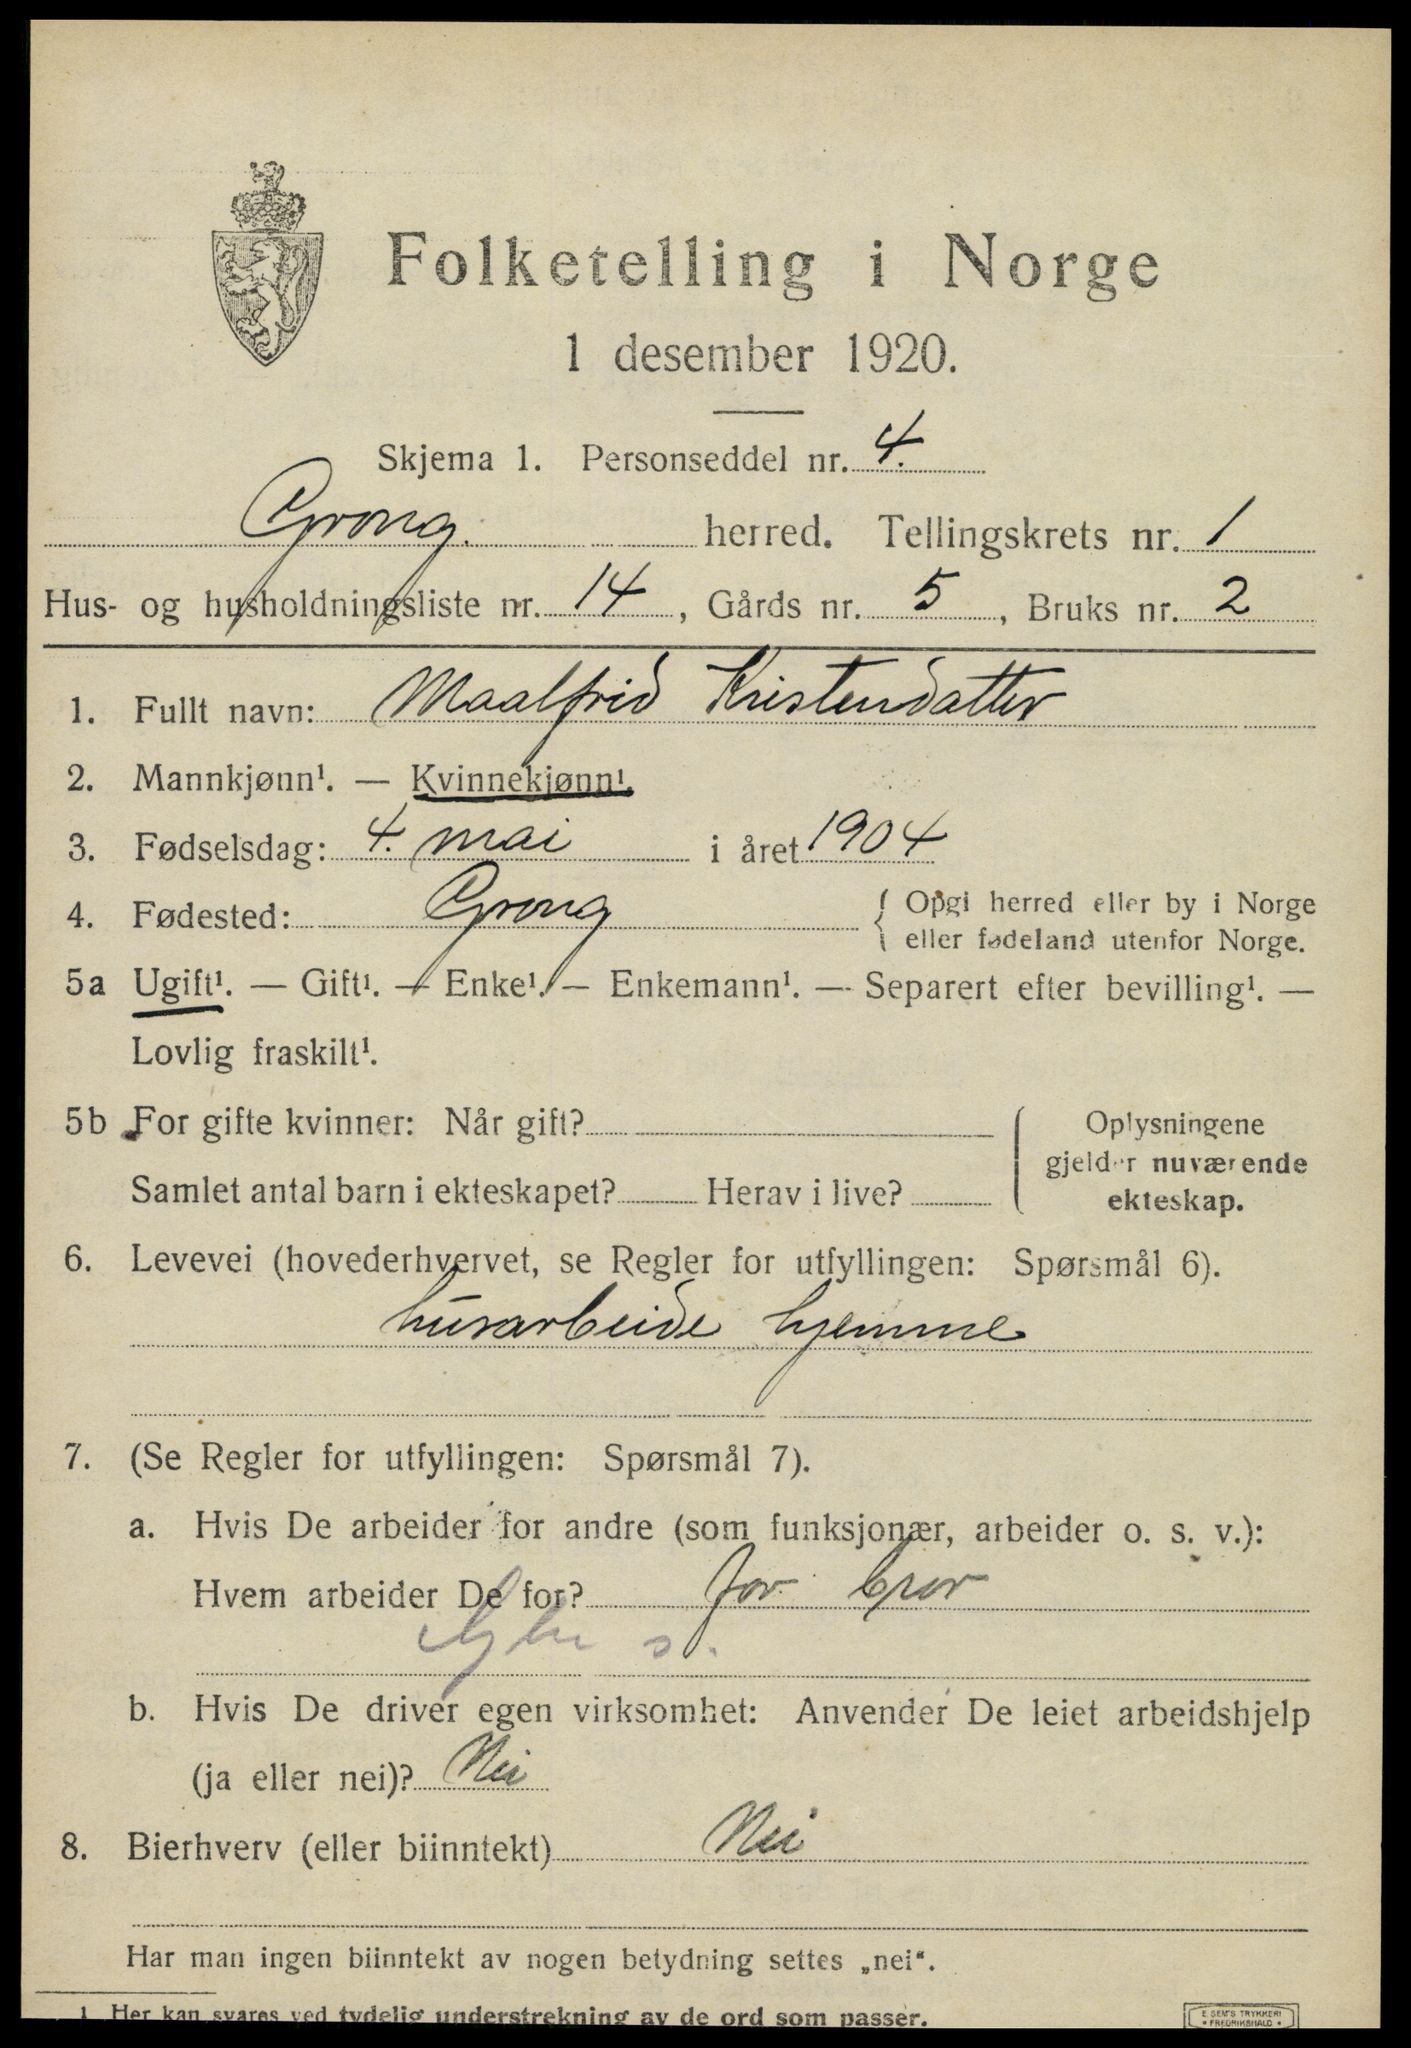 Folketelling i Norge
1 desember 1920.
Skjema 1. Personseddel nr. 4.
Grong. herred. Tellingskrets nr. 1
Hus- og husholdningsliste nr. 14, Gårds nr. 5, Bruks nr. 2
1. Fullt navn: Maalfrid Kristendatter
2. Mannkjønn¹. — Kvinnekjønn¹.
3. Fødselsdag: 4. mai i året 1904
4. Fødested: Grong { Opgi herred eller by i Norge
eller fødeland utenfor Norge.
5a Ugift¹. — Gift¹. — Enke¹. — Enkemann¹. — Separert efter bevilling¹. —
Lovlig fraskilt¹.
5b For gifte kvinner: Når gift?
Samlet antal barn i ekteskapet? Herav i live?
Oplysningene
gjelder nuværende
ekteskap.
6. Levevei (hovederhvervet, se Regler for utfyllingen: Spørsmål 6).
husarbeide hjemme
7. (Se Regler for utfyllingen: Spørsmål 7).
a. Hvis De arbeider for andre (som funksjonær, arbeider o. s. v.):
Hvem arbeider De for? for bror
b. Hvis De driver egen virksomhet: Anvender De leiet arbeidshjelp
(ja eller nei)? Nei
8. Bierhverv (eller biinntekt) Nei
Har man ingen biinntekt av nogen betydning settes „nei“.
1 Her kan svares ved tydelig understrekning av de ord som passer.
E SEM'S TRYKKERI
• FREDRIKSHALD •